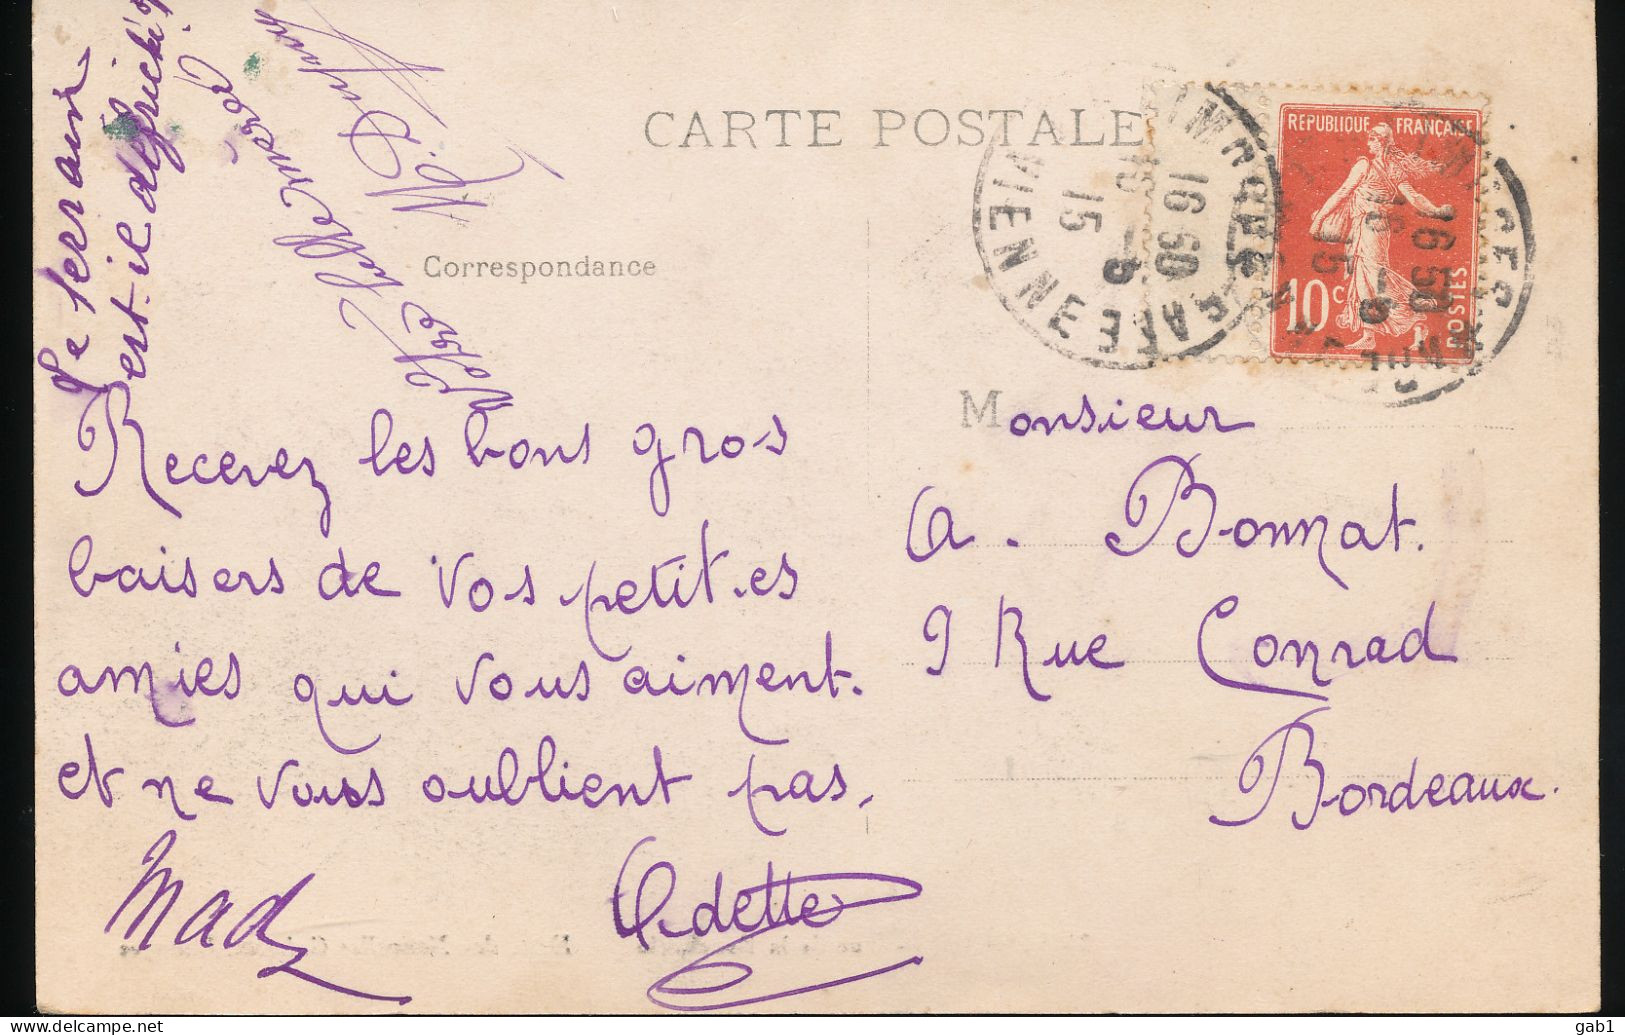 CARTE POSTALE
Correspondance
Le terrain
est-il défriché ?
Votre
M. D
Recevez les bons gros
baisers de vos petit.es
amies qui vous aiment.
et ne vous oublient pas.
Mad
Odette
Monsieur
A. Bonnat.
9 Rue Conrad
Bordeaux.
REPUBLIQUE FRANÇAISE
10 c
POSTES
16 50
15
VIENNE
16 50
15
delcampe.net
gab1